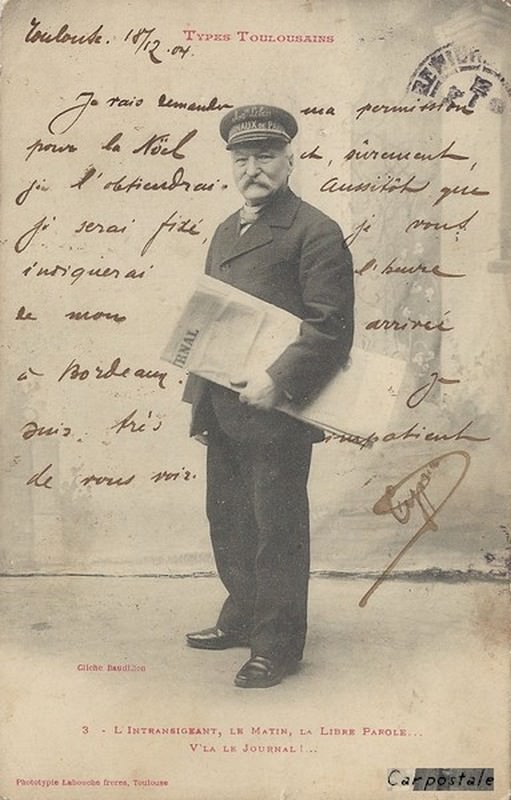 Toulouse. 18/12. 04.
TYPES TOULOUSAINS
Je vais demander ma permission
pour la Nöel et, sûrement,
je l'obtiendrai. Aussitôt que
je serai fixé, je vous
indiquerai l'heure
de mon arrivée
à Bordeaux. Je
suis très impatient
de vous voir.
JOURNAUX DE PARIS
JOURNAL
Cliché Baudillon
3 - L'INTRANSIGEANT, LE MATIN, LA LIBRE PAROLE...
V'LA LE JOURNAL!..
Phototypie Labouche frères, Toulouse
Carpostale